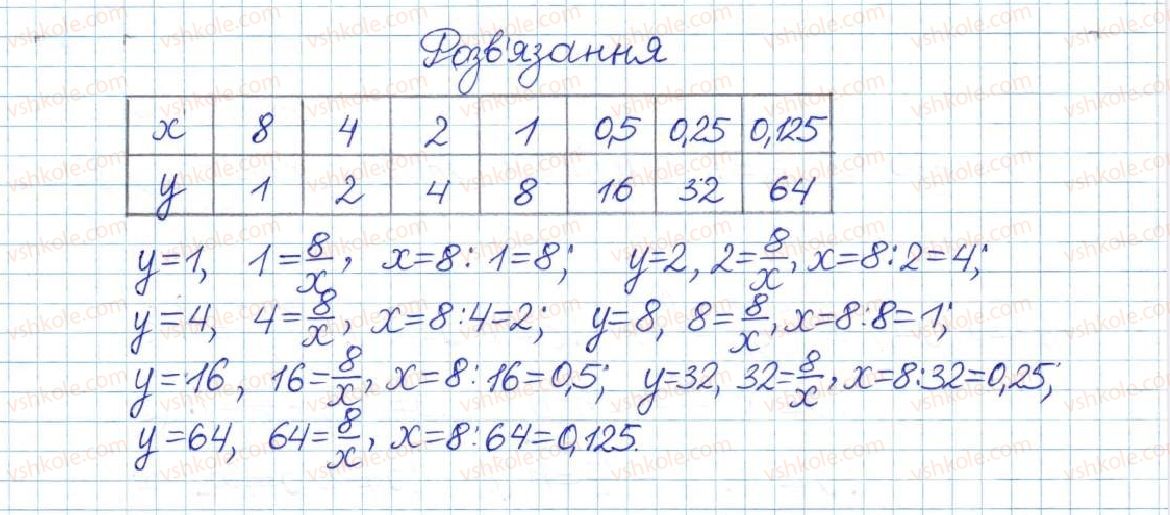 Розв'язання
x 8 4 2 1 0,5 0,25 0,125
y 1 2 4 8 16 32 64
y=1, 1=8/x, x=8:1=8; y=2, 2=8/x, x=8:2=4;
y=4, 4=8/x, x=8:4=2; y=8, 8=8/x, x=8:8=1;
y=16, 16=8/x, x=8:16=0,5; y=32, 32=8/x, x=8:32=0,25;
y=64, 64=8/x, x=8:64=0,125.
vshkole.com